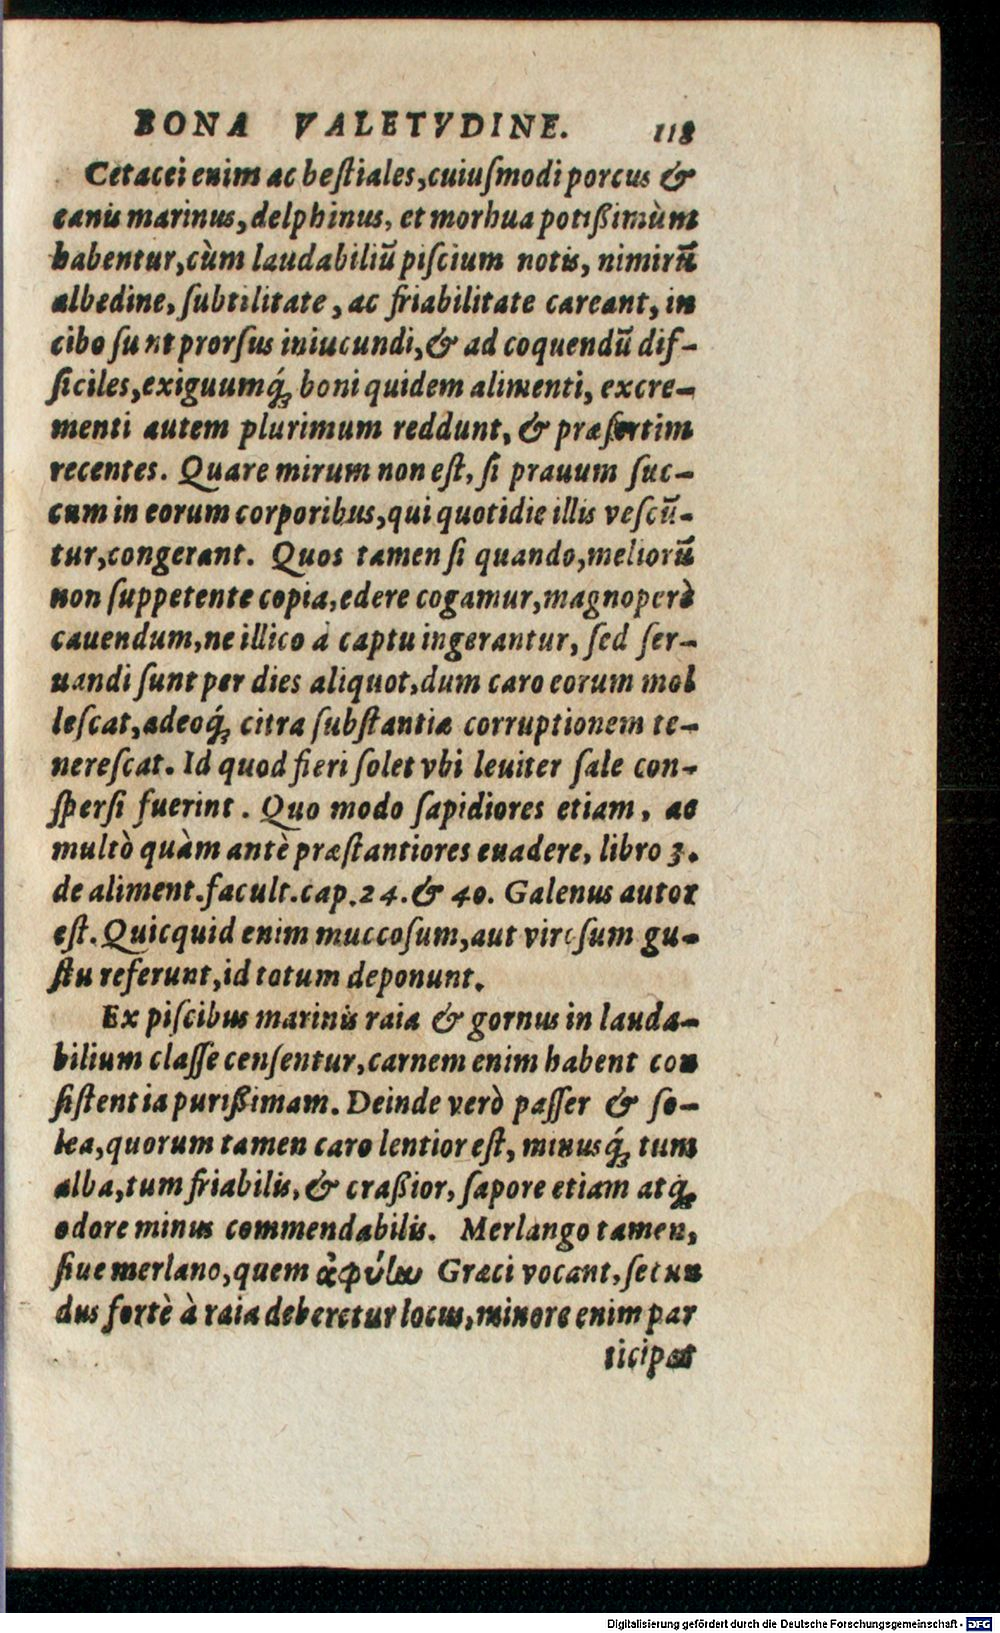 BONA VALETVDINE. 118
Cetacei enim ac beſtiales, cuiuſmodi porcus &
canis marinus, delphinus, et morhua potißimùm
habentur, cùm laudabiliũ piſcium notis, nimirũ
albedine, ſubtilitate, ac friabilitate careant, in
cibo ſunt prorſus iniucundi, & ad coquendũ dif-
ficiles, exiguumq́; boni quidem alimenti, excre-
menti autem plurimum reddunt, & præſertim
recentes. Quare mirum non eſt, ſi prauum ſuc-
cum in eorum corporibus, qui quotidie illis veſcũ-
tur, congerant. Quos tamen ſi quando, meliorũ
non ſuppetente copia, edere cogamur, magnoperè
cauendum, ne illico à captu ingerantur, ſed ſer-
uandi ſunt per dies aliquot, dum caro eorum mol
leſcat, adeoq́; citra ſubſtantiæ corruptionem te-
nereſcat. Id quod fieri ſolet vbi leuiter ſale con-
ſperſi fuerint. Quo modo ſapidiores etiam, ac
multò quàm antè præſtantiores euadere, libro 3.
de aliment. facult. cap. 24. & 40. Galenus autor
eſt. Quicquid enim muccoſum, aut viroſum gu-
ſtu referunt, id totum deponunt.
Ex piſcibus marinis raia & gornus in lauda-
bilium claſſe cenſentur, carnem enim habent con
ſiſtentia purißimam. Deinde verò paſſer & ſo-
lea, quorum tamen caro lentior eſt, minusq́; tum
alba, tum friabilis, & craßior, ſapore etiam atq́;
odore minus commendabilis. Merlango tamen,
ſiue merlano, quem ἀφύλω Græci vocant, ſecun
dus fortè à raia deberetur locus, minore enim par
ticipat
Digitalisierung gefördert durch die Deutsche Forschungsgemeinschaft - DFG